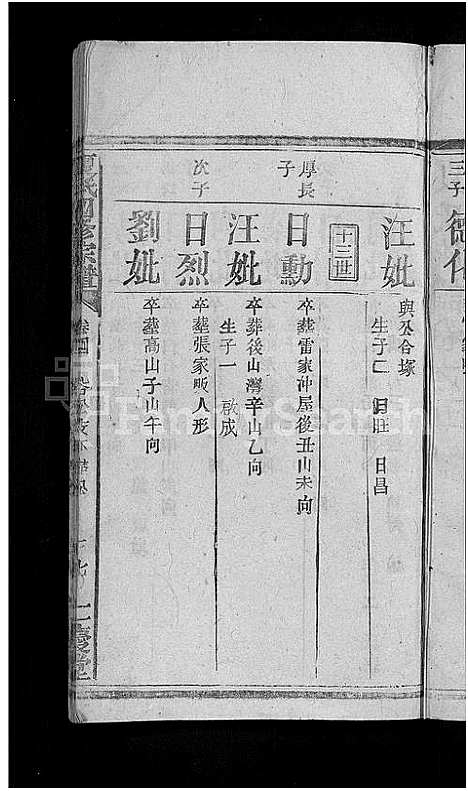 三子
德化
汪妣
與公合塚
生子二 日旺 日昌
十三世
厚長子
日勳
卒葬雷家沖屋後丑山未向
汪妣
卒葬後山灣辛山乙向
生子一 啟成
次子
日烈
卒葬張家畈人形
劉妣
卒葬高山子山午向
四修宗譜
卷四
FamilySearch